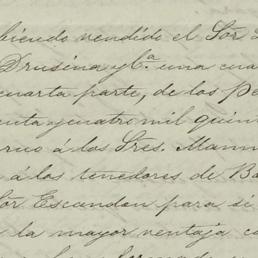 biendo vendido el Sor
Drusina y Ca. una cua
cuarta parte, de los Pe
enta y cuatro mil quin
rico á los Sres. Mann
á los tenedores de Bo
Sor Escandon para si
la mayor ventaja co